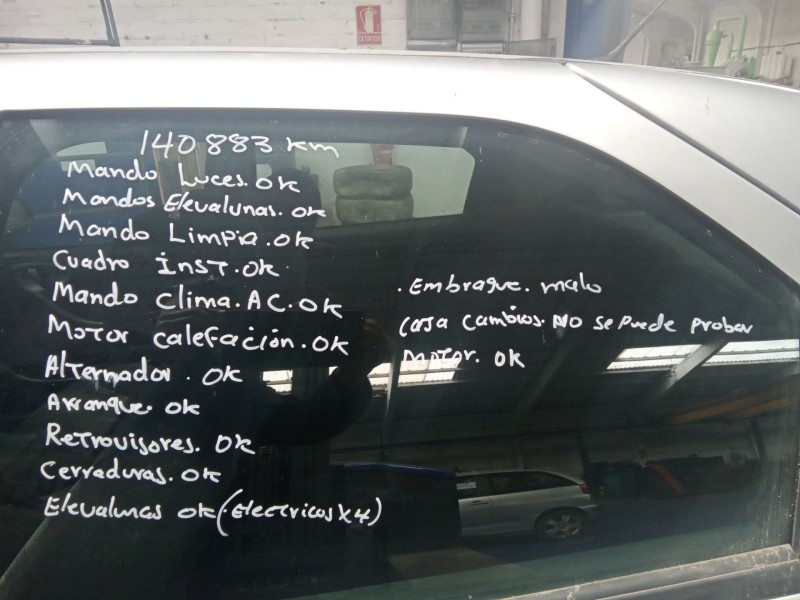 140883 km
Mando Luces. OK
Mandos Elevalunas. OK
Mando Limpia. OK
Cuadro inst. OK
Mando Clima. AC. OK
Motor calefación. OK
Alternador. OK
Arranque. OK
Retrovisores. OK
Cerraduras. OK
Elevalunas OK (Electricos x4)
. Embrague. malo
Caja Cambios. NO se puede probar
Motor. OK